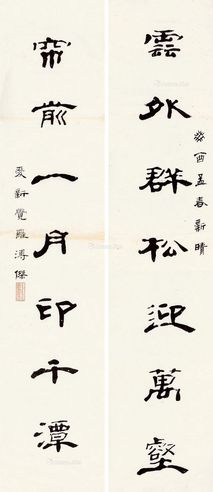 癸酉孟春新晴
雲外群松迎萬壑
帘前一月印千潭
愛新覺羅溥傑